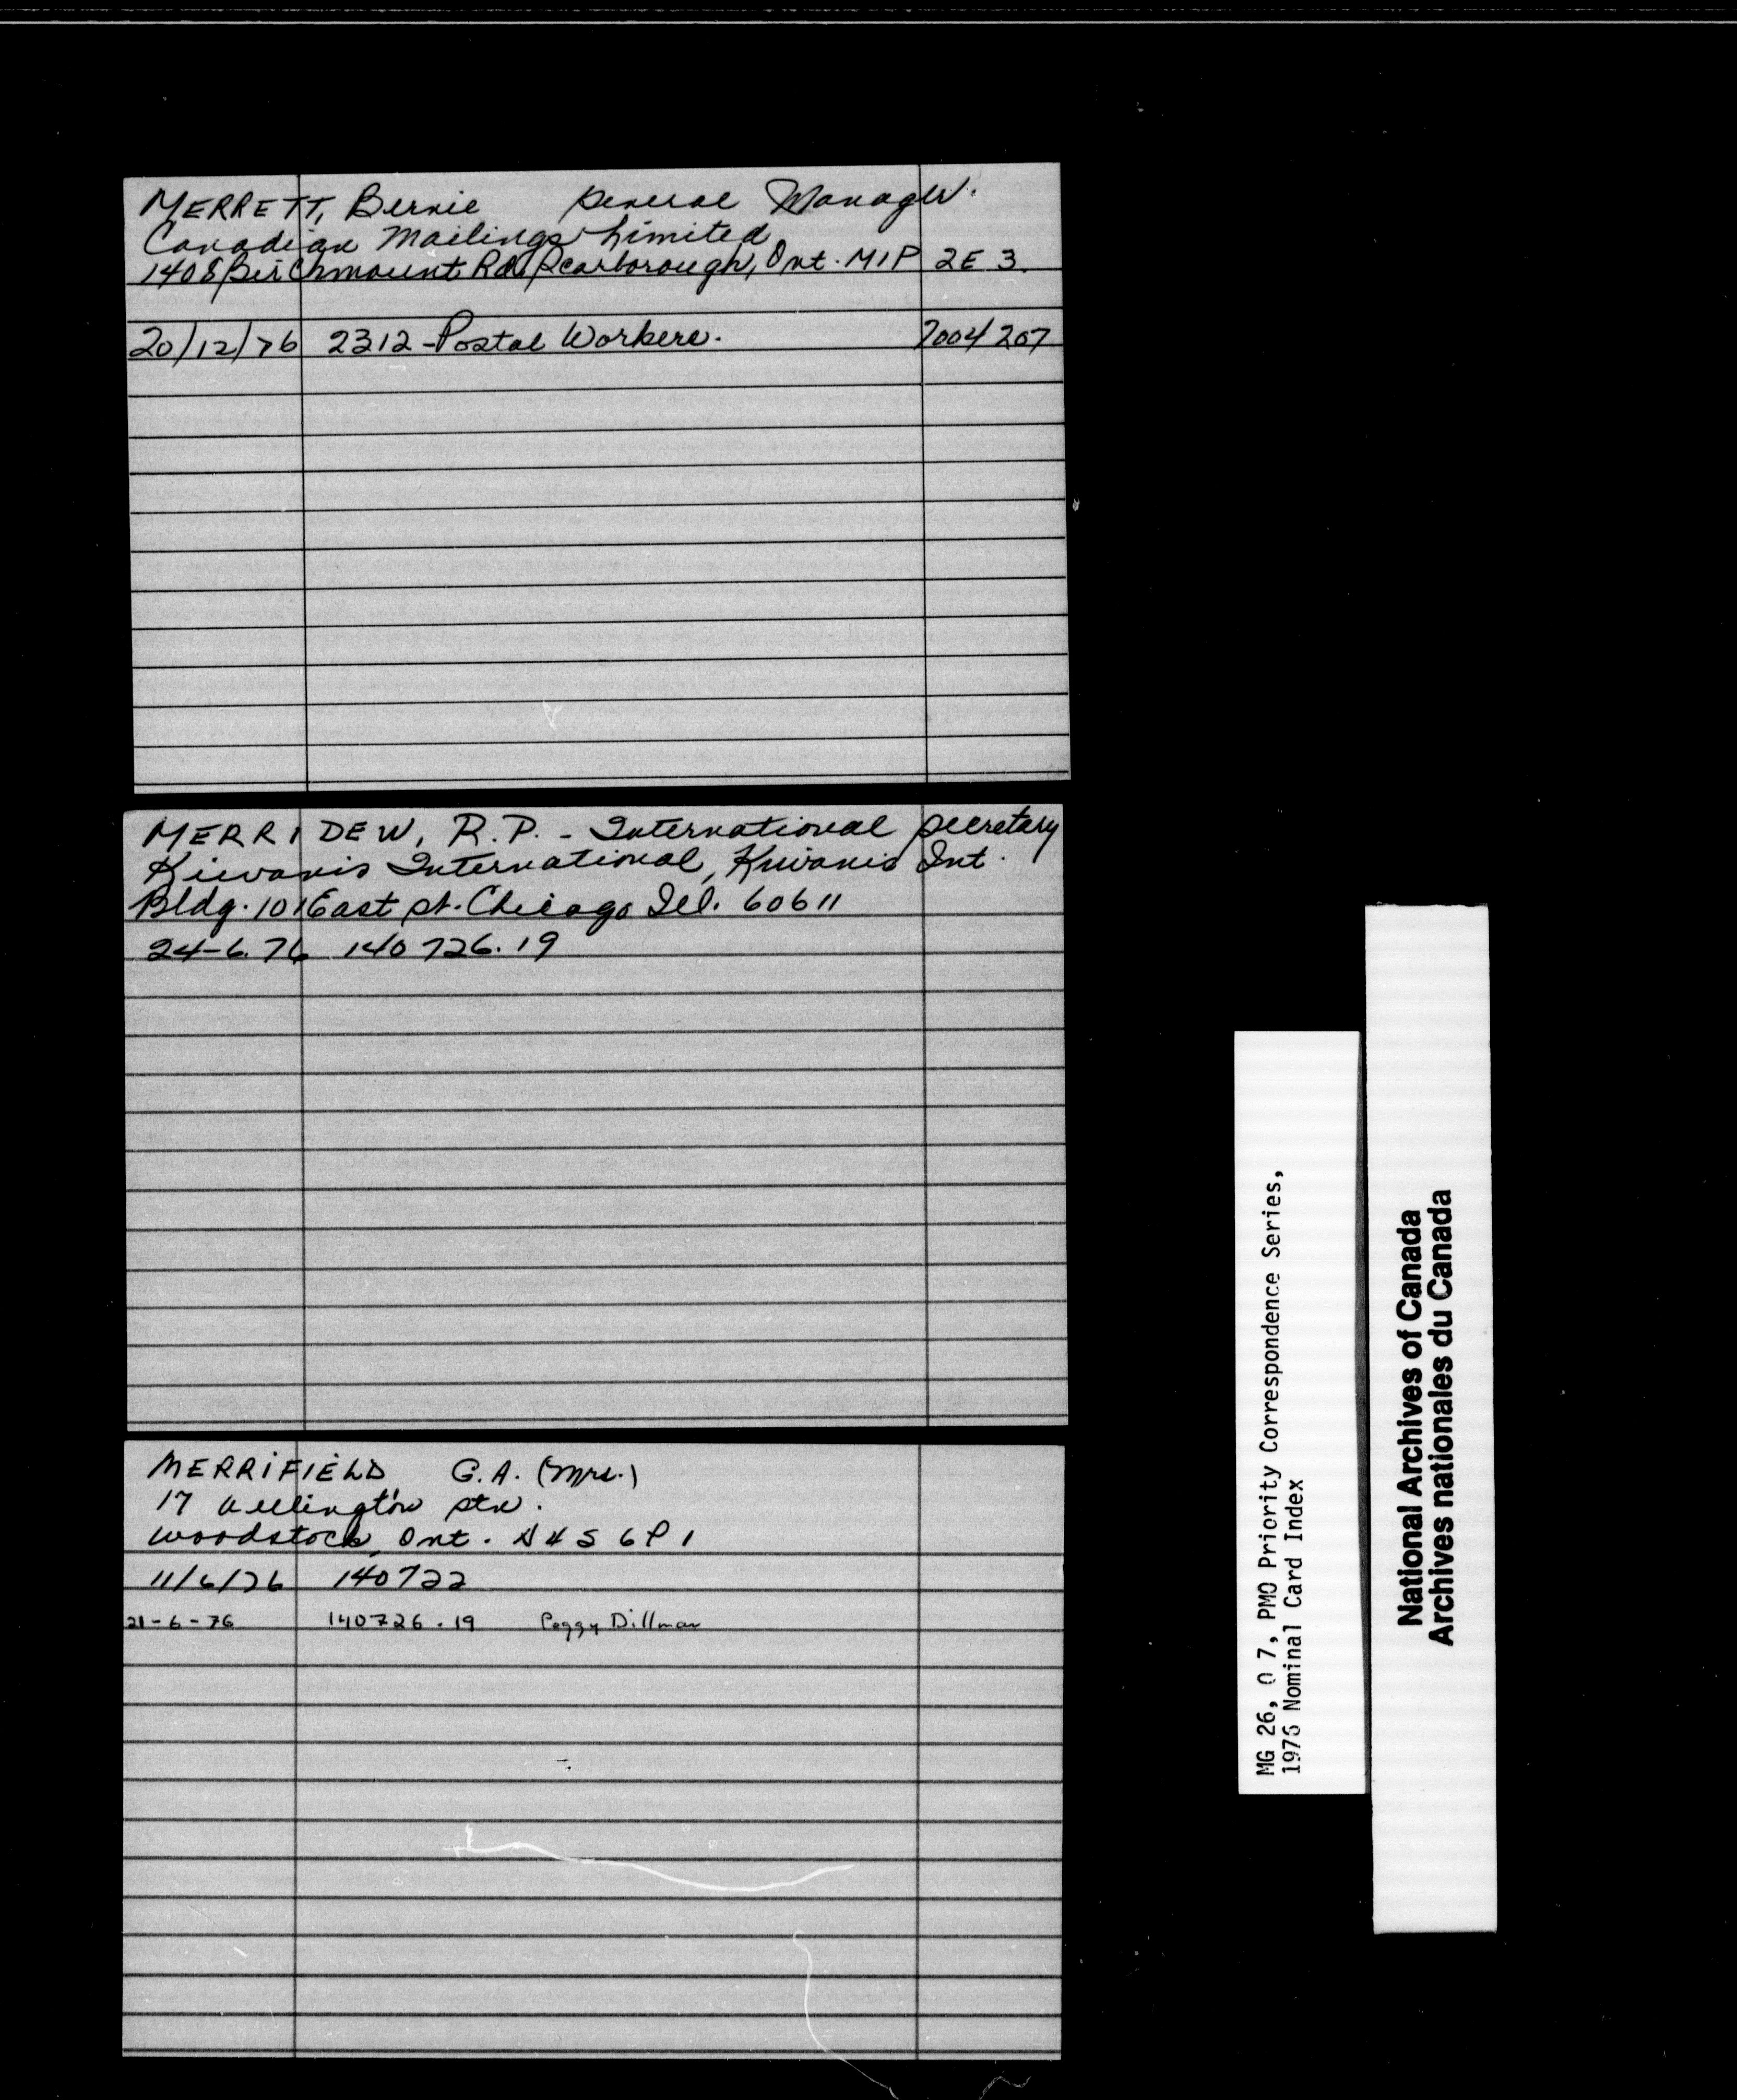 MERRETT, Bernie General Manager.
Canadian Mailings Limited
1408 Birchmount Rd, Scarborough, Ont. M1P 2E3.
20/12/76 2312-Postal Workers. 7004 207
MERRIDEW, R.P. - International Secretary
Kiwanis International, Kiwanis Int.
Bldg. 101 East st. Chicago Ill. 60611
24-6.76 140726.19
MERRIFIELD G.A. (Mrs.)
17 Wellington stn.
Woodstock, Ont. N4S 6P1
11/6/76 140722
21-6-76 140726.19 Peggy Dillman
MG 26, O 7, PMO Priority Correspondence Series,
1976 Nominal Card Index
National Archives of Canada
Archives nationales du Canada